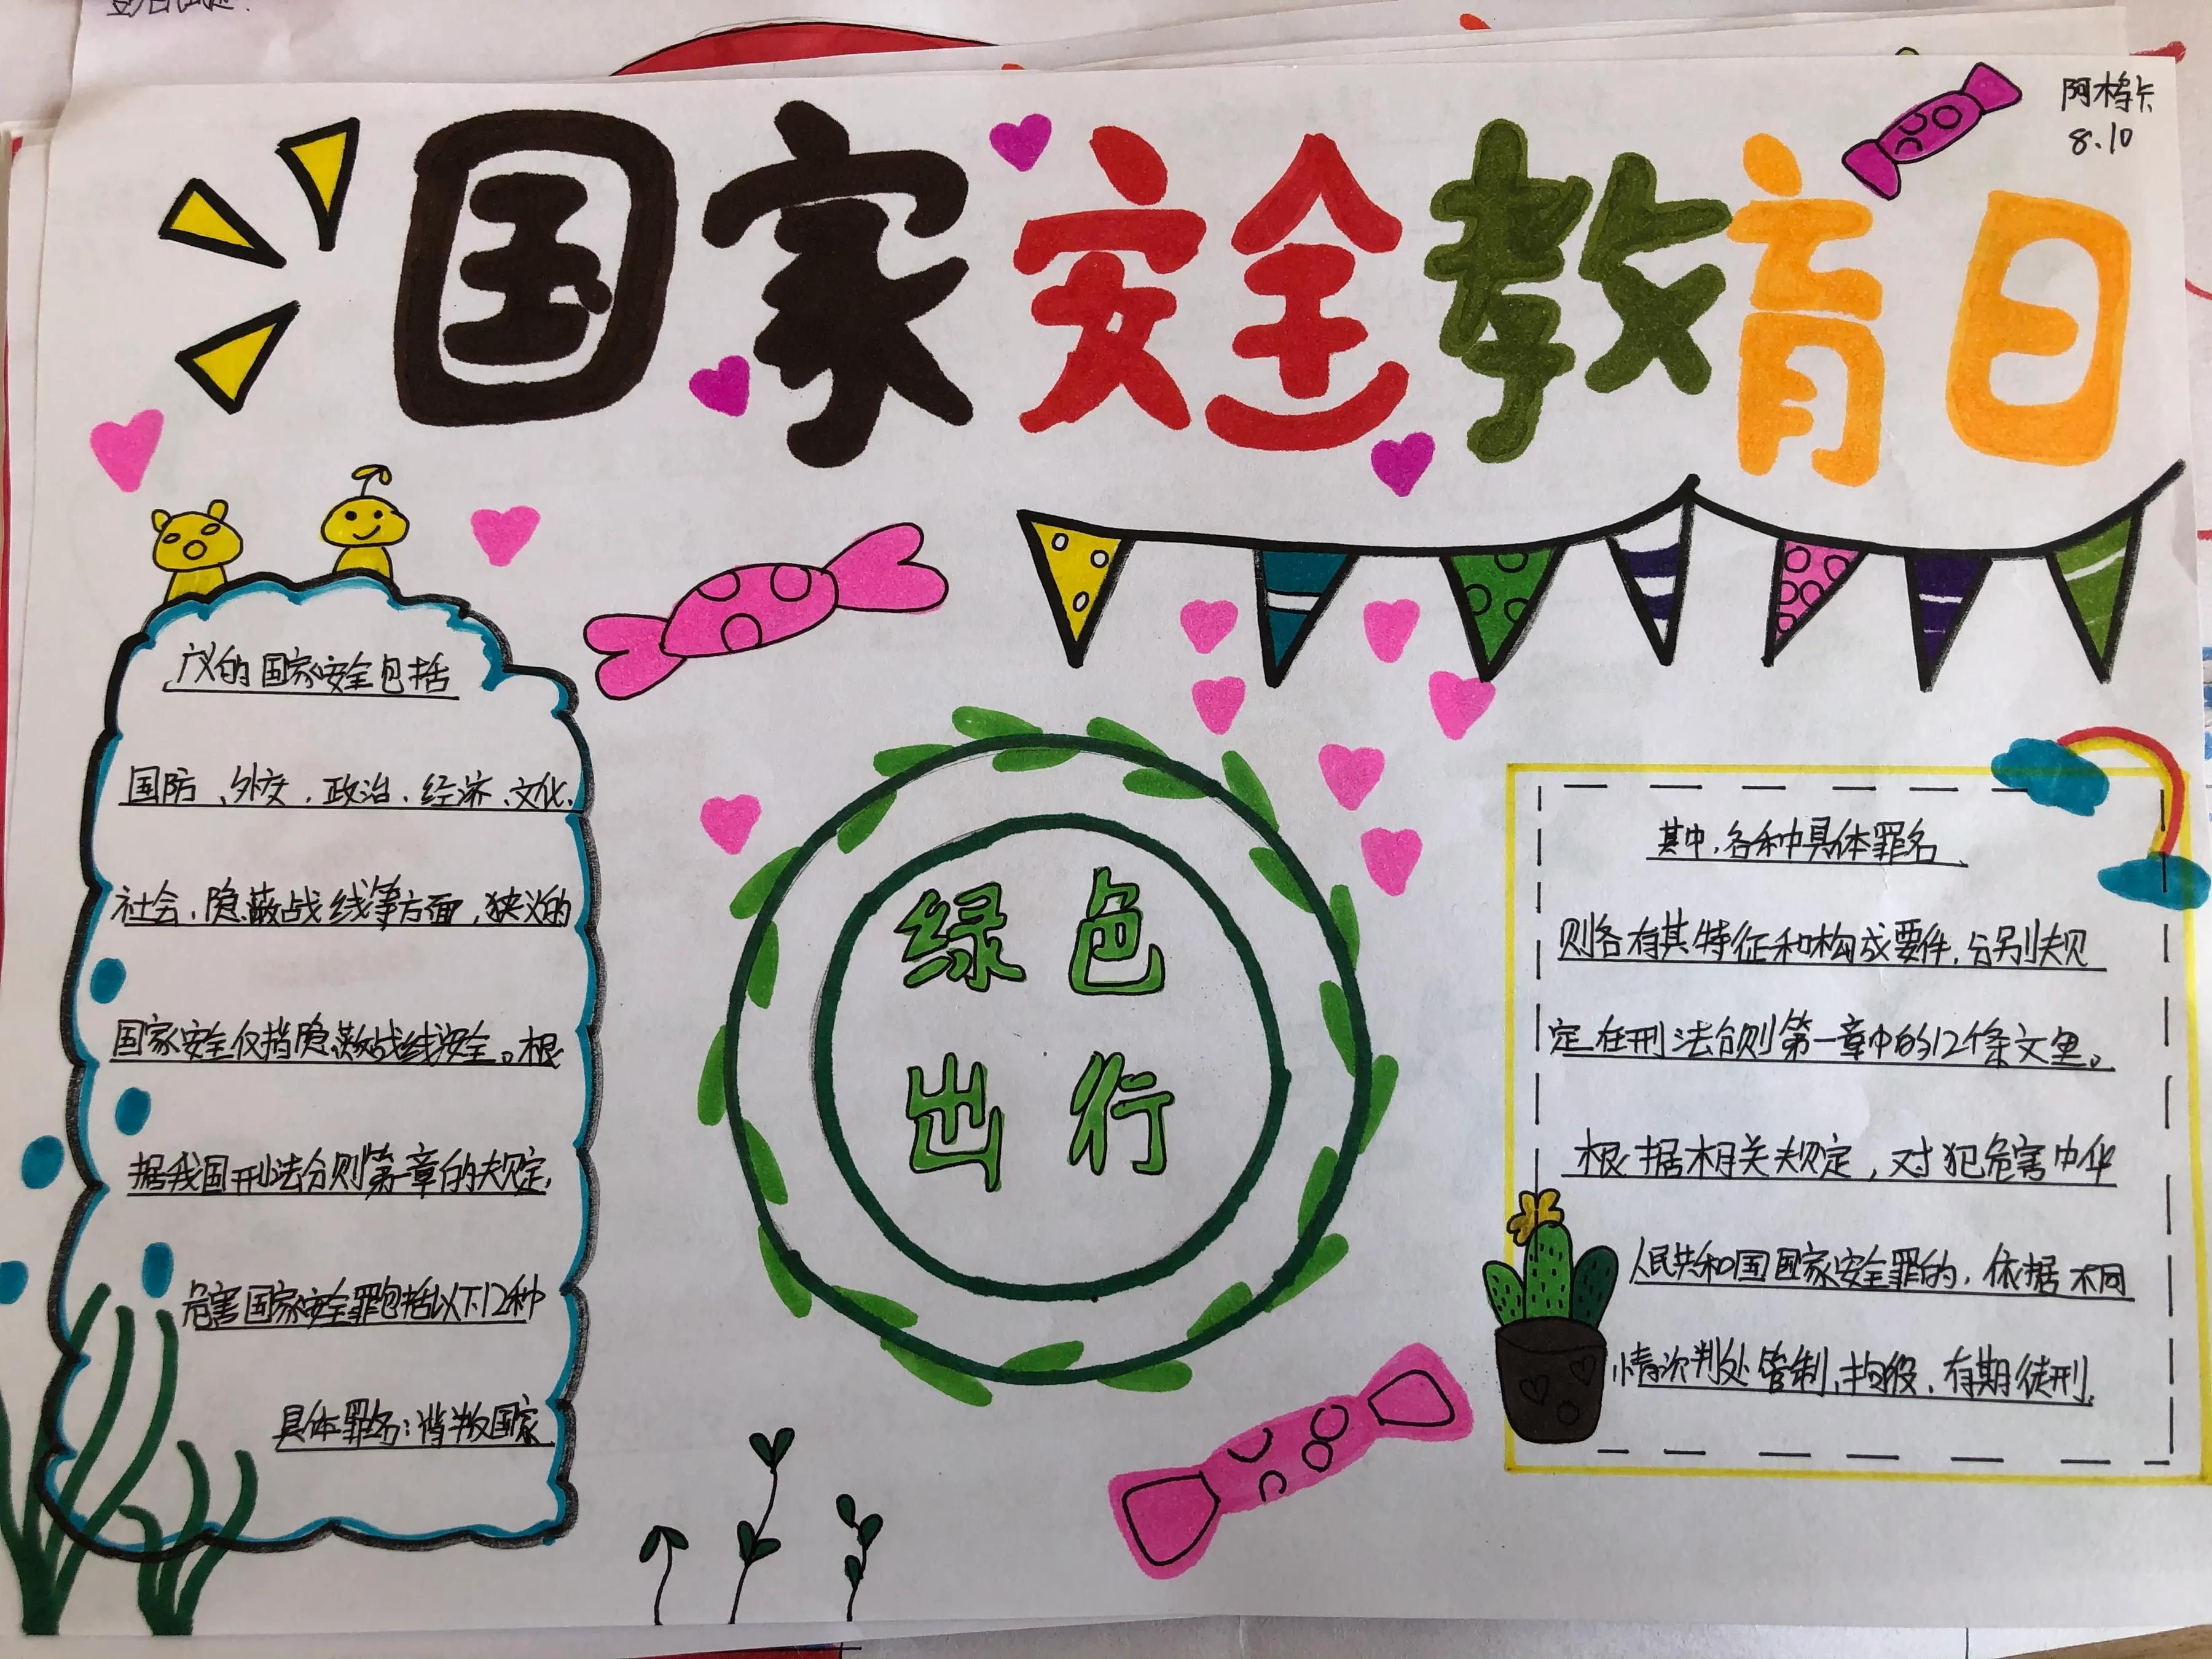 国家安全教育日
阿格卡
8.10
广义的国家安全包括
国防、外交、政治、经济、文化、
社会、隐蔽战线等方面,狭义的
国家安全仅指隐蔽战线安全。根
据我国刑法分则第一章的规定,
危害国家安全罪包括以下12种
具体罪名:背叛国家
绿色
出行
其中,各种具体罪名、
则各有其特征和构成要件,分别规
定在刑法分则第一章中的12个条文里。
根据相关规定,对犯危害中华
人民共和国国家安全罪的,依据不同
情次判处管制、拘役、有期徒刑、